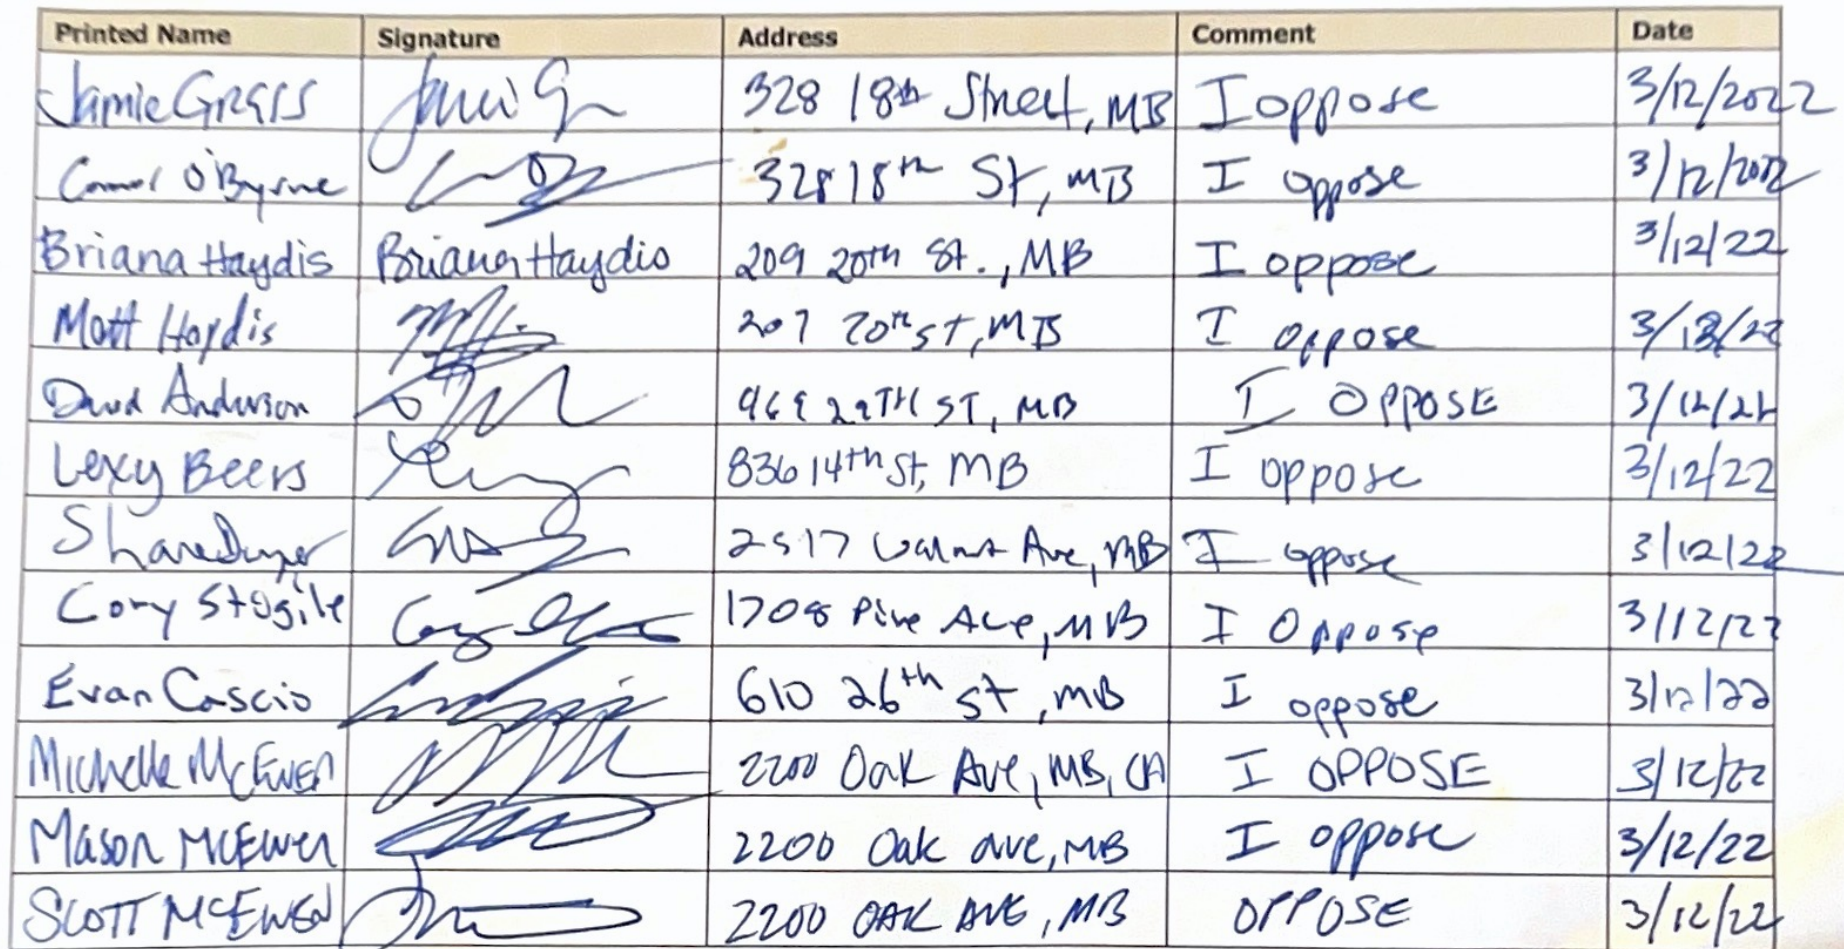 Printed Name Signature Address Comment Date
Jamie Grass 328 18th Street, MB I oppose 3/12/2022
Connor O'Byrne 328 18th St, MB I oppose 3/12/2022
Briana Haydis Briana Haydis 209 20th St., MB I oppose 3/12/22
Matt Haydis 207 20th St, MB I oppose 3/12/22
David Anderson 29TH ST, MB I OPPOSE 3/12/22
Lexy Beers 836 14th St, MB I oppose 3/12/22
Shane 2517 Walnut Ave, MB I oppose 3/12/22
Cory 1708 Pine Ave, MB I Oppose 3/12/22
Evan Cascio 610 26th St, MB I oppose 3/12/22
Michelle McEwen 2200 Oak Ave, MB, CA I OPPOSE 3/12/22
Mason McEwen 2200 Oak ave, MB I oppose 3/12/22
SCOTT MCEWEN 2200 OAK AVE, MB OPPOSE 3/12/22